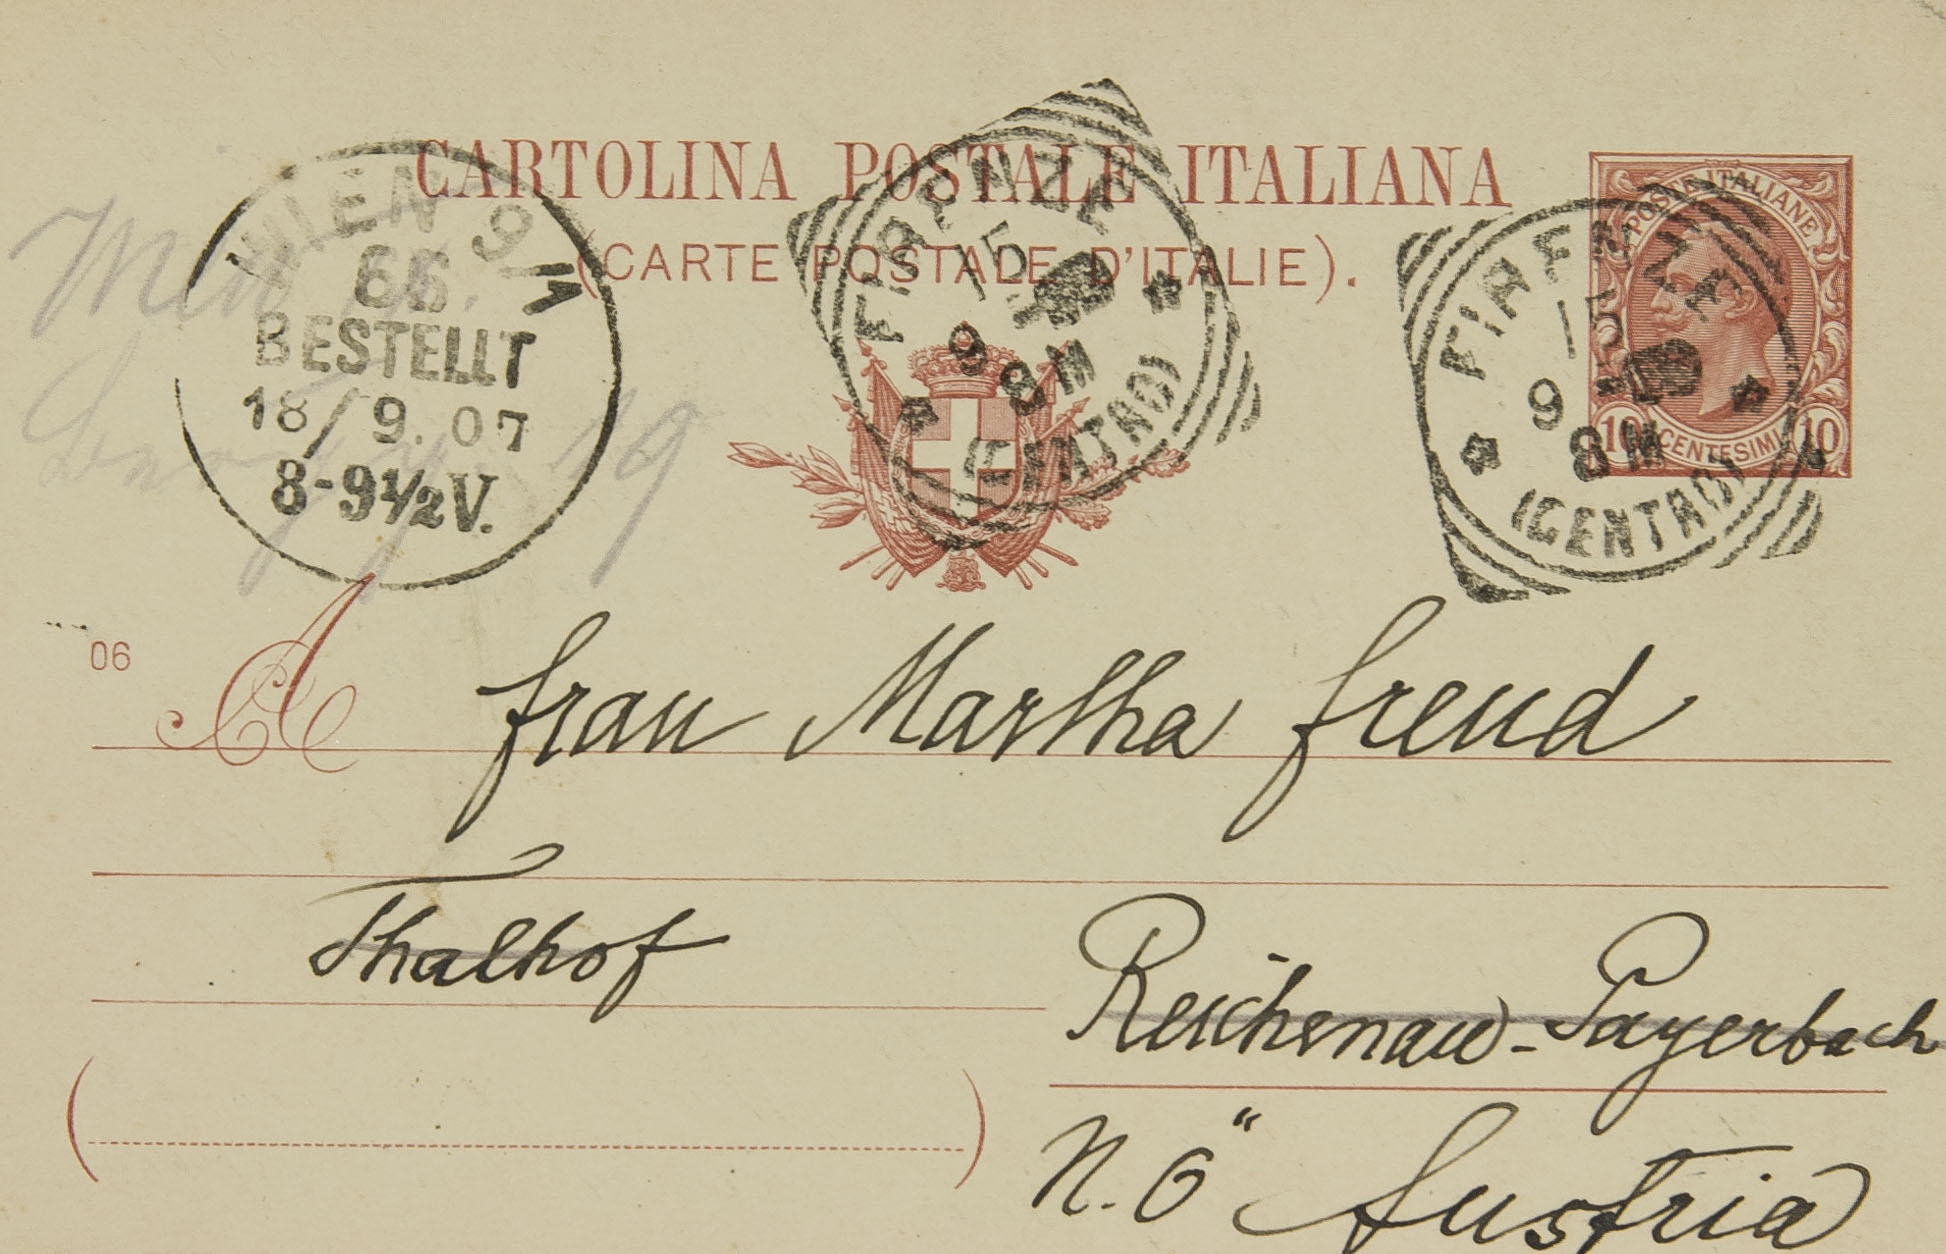 CARTOLINA POSTALE ITALIANA
(CARTE POSTALE D'ITALIE).
WIEN 9/1
66
BESTELLT
18/9.07
8-9½V.
FIRENZE
15
9
8M
(CENTRO)
FIRENZE
15
9
8M
(CENTRO)
POSTE ITALIANE
10 CENTESIMI 10
Wien IX.
19
06
A Frau Martha Freud
Thalhof
Reichenau-Payerbach
N.Ö Austria